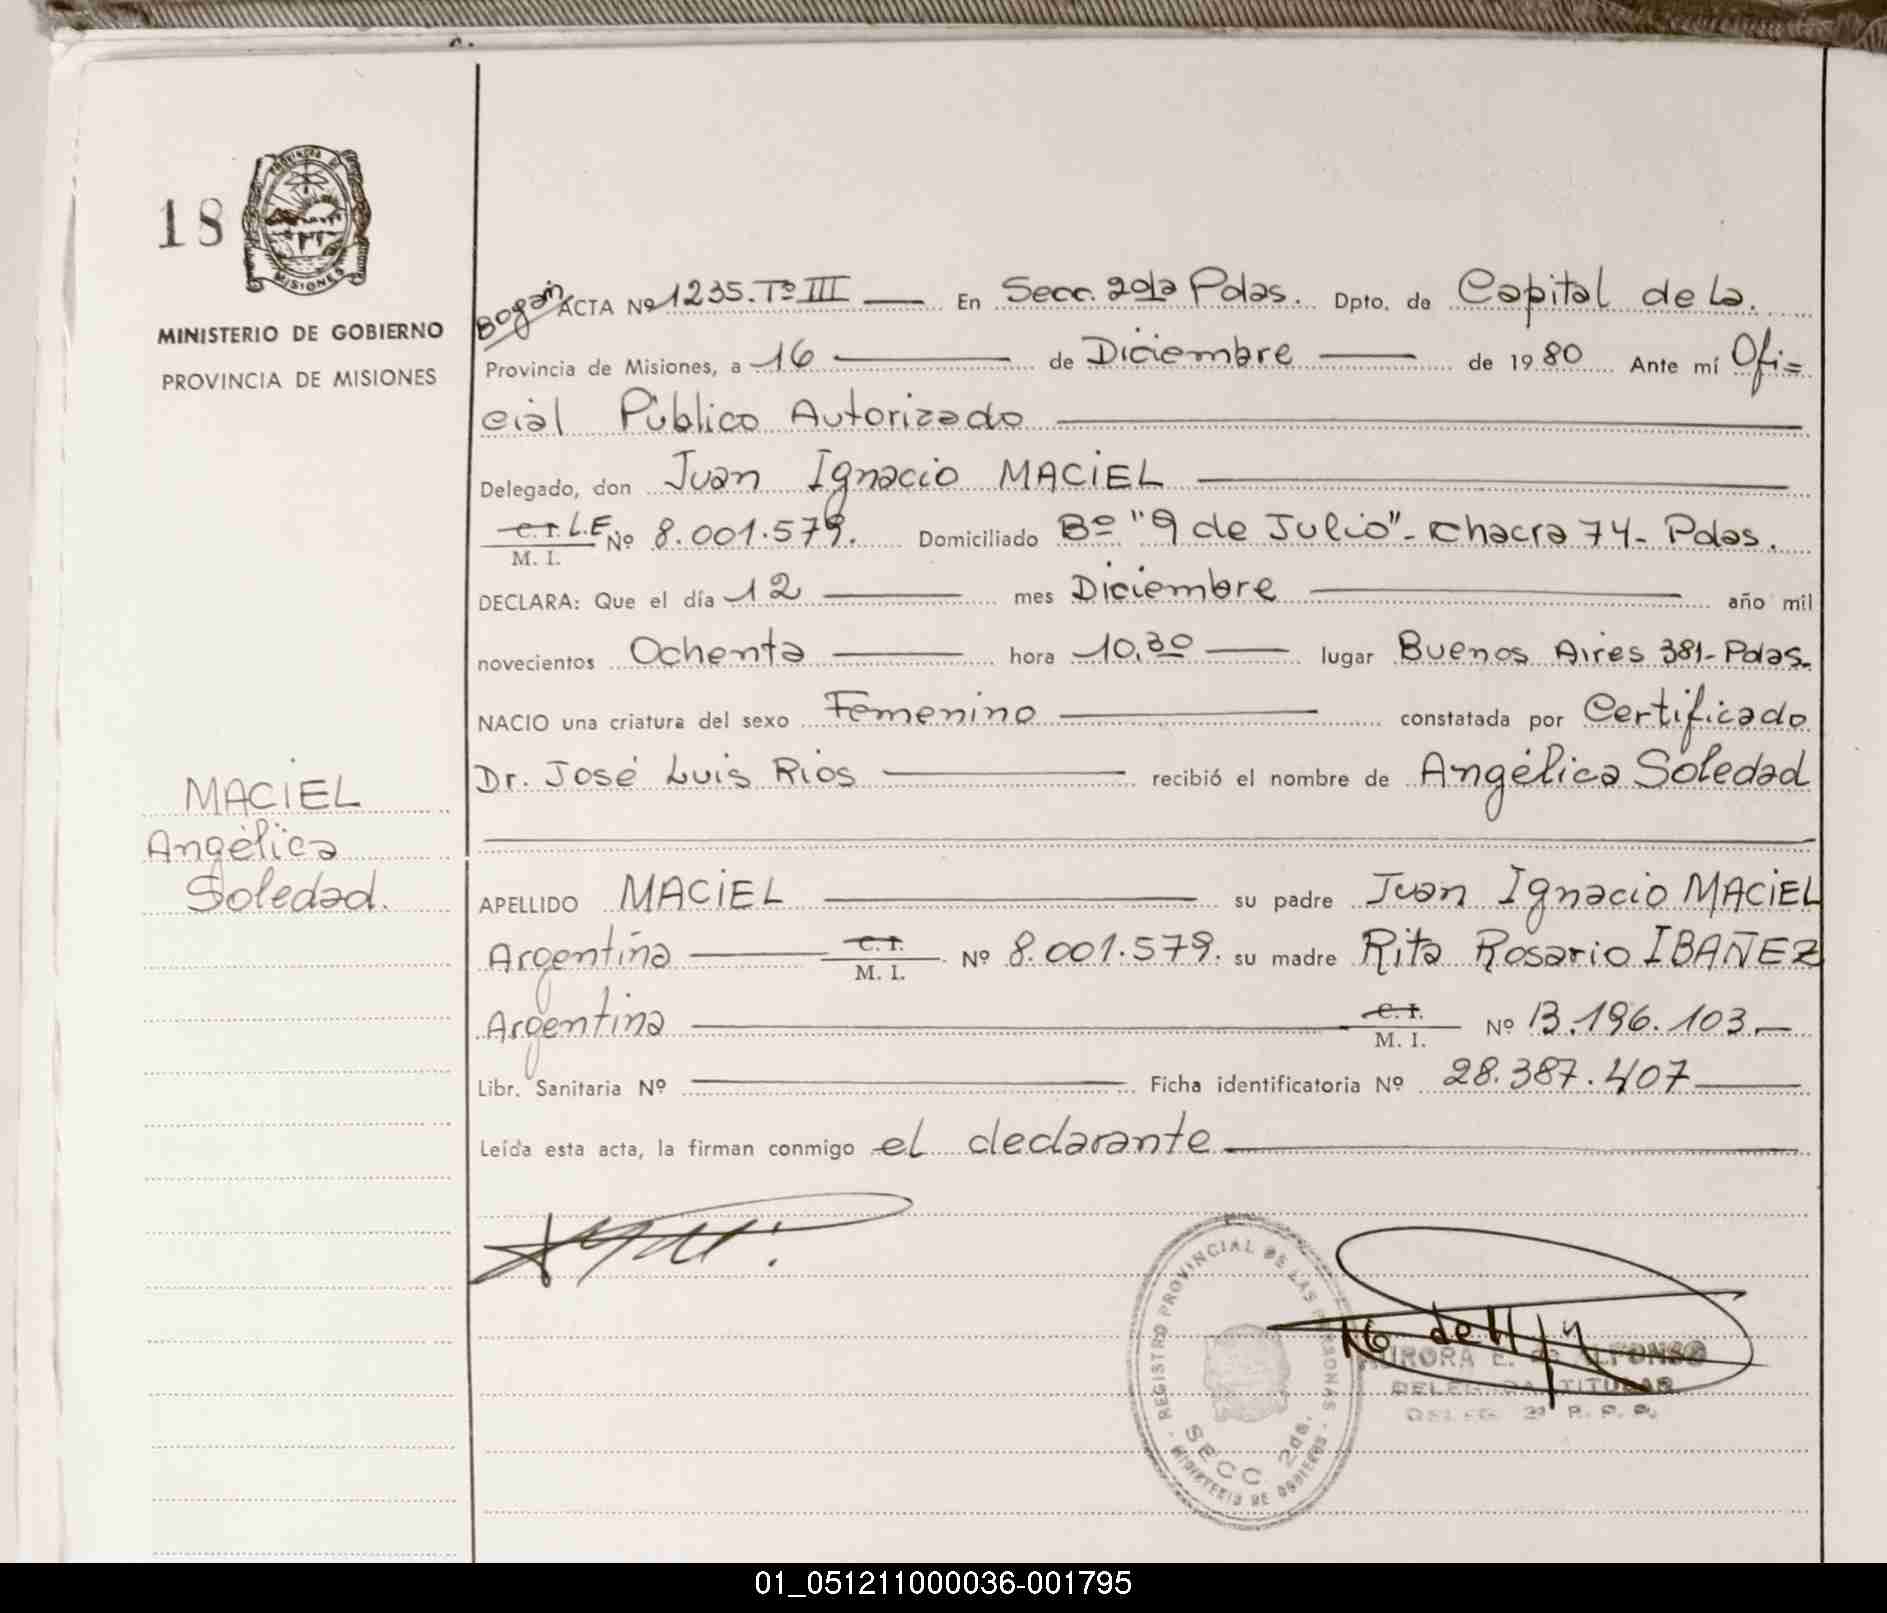 18
PROVINCIA DE
MISIONES
MINISTERIO DE GOBIERNO
PROVINCIA DE MISIONES
ACTA Nº 1235. Tº III En Secc. 2da Pdas. Dpto. de Capital de la.
Provincia de Misiones, a 16 de Diciembre de 1980 Ante mí Ofi=
cial Público Autorizado
Delegado, don Juan Ignacio MACIEL
C. I. L.E Nº 8.001.579. Domiciliado Bº "9 de Julio"- Chacra 74- Pdas.
M. I.
DECLARA: Que el día 12 mes Diciembre año mil
novecientos Ochenta hora 10,30 lugar Buenos Aires 381- Pdas.
NACIO una criatura del sexo Femenino constatada por Certificado
Dr. José Luis Rios recibió el nombre de Angélica Soledad
MACIEL
Angélica
Soledad.
APELLIDO MACIEL su padre Juan Ignacio MACIEL
Argentina C. I. Nº 8.001.579. su madre Rita Rosario IBAÑEZ
M. I.
Argentina C. I. Nº 13.196.103.
M. I.
Libr. Sanitaria Nº Ficha identificatoria Nº 28.387.407
Leída esta acta, la firman conmigo el declarante
REGISTRO PROVINCIAL DE LAS PERSONAS
SECC 2da.
MINISTERIO DE GOBIERNO
AURORA E. de ALFONSO
DELEGADA TITULAR
DELEG. 2ª R. P. P.
01_051211000036-001795